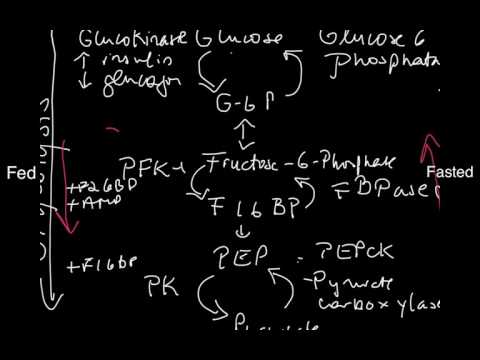 Glucokinase Glucose Glucose 6
↑ insulin phosphata
↓ glucagon
G-6P
Fructose-6-Phosphate
PFK-1
Fed
Fasted
+F26BP
+AMP
F16BP
FBPase
+F16BP
PEP
PEPCK
PK
-Pyruvate
carboxylase
Pyruvate